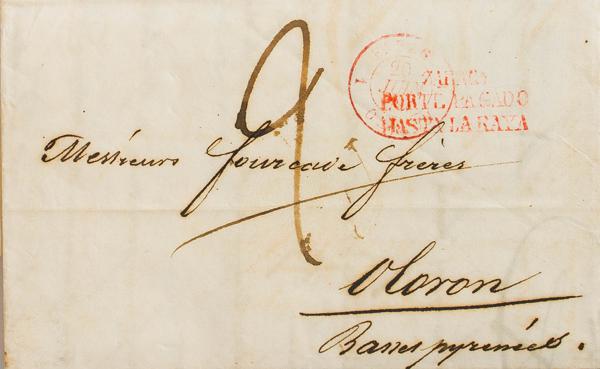 2
PORTE PAGADO
HASTA LA RAYA
Messieurs fourcade frères
Oloron
Basses pyrenées.